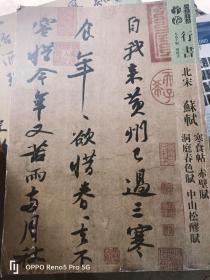 行書
北宋 蘇軾
寒食帖 赤壁賦
洞庭春色賦 中山松醪賦
自我來黃州已過三寒
食年〻欲惜春〻去不
容惜今年又苦雨兩月
OPPO Reno5 Pro 5G